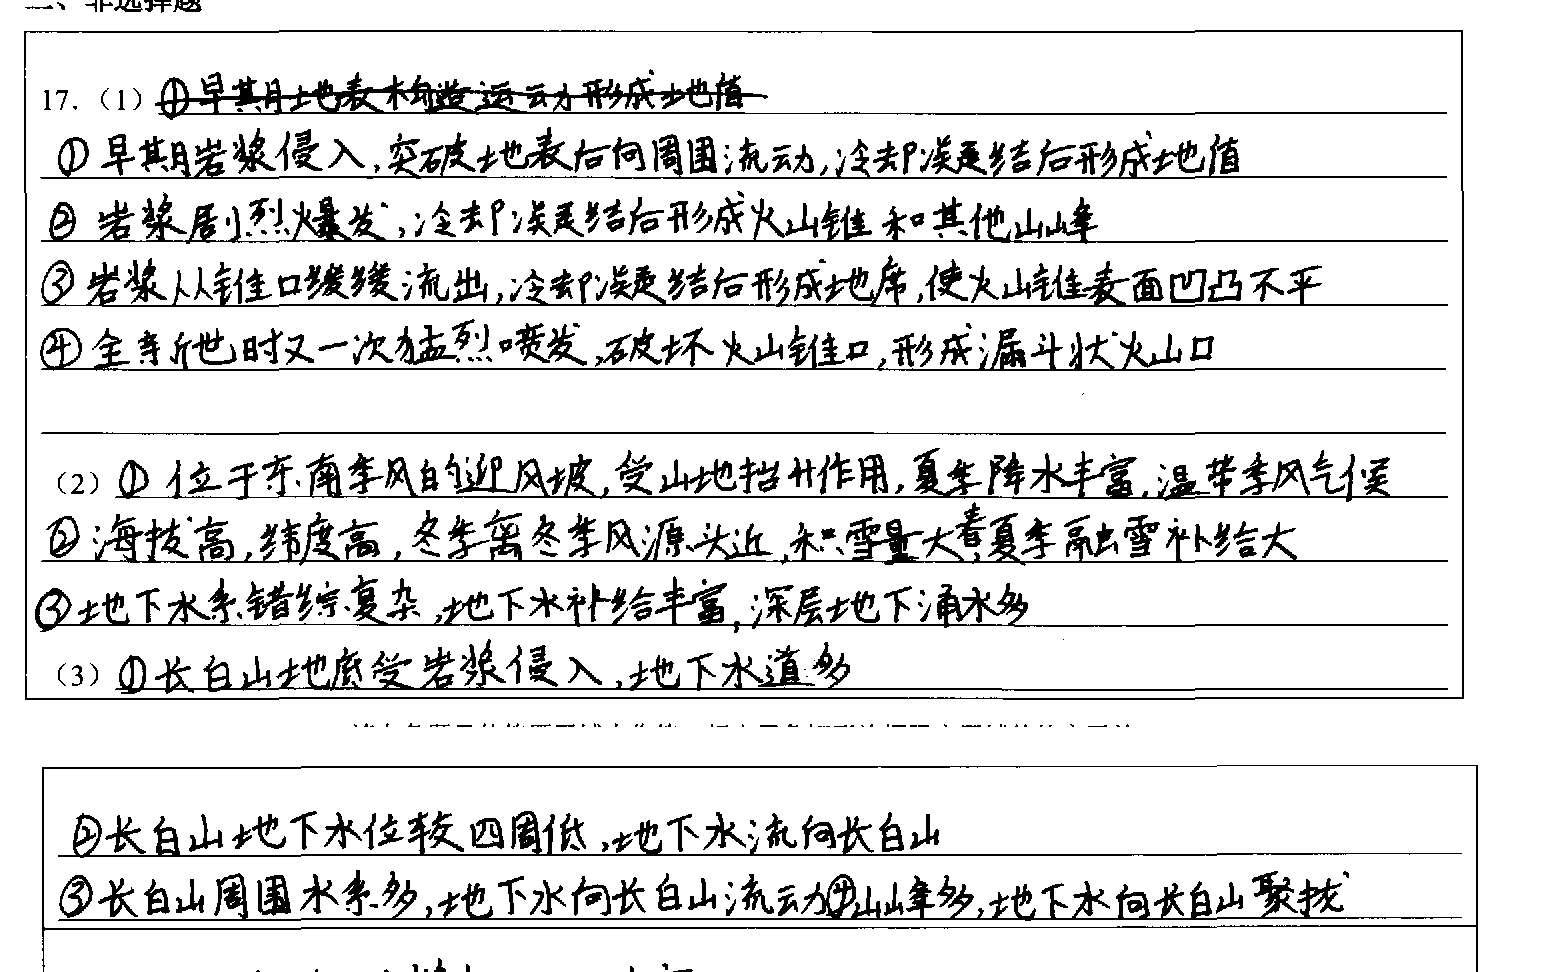 二、非选择题
17.（1）①早期地表构造运动形成地值
①早期岩浆侵入,突破地表后向周围流动,冷却凝结后形成地值
② 岩浆剧烈爆发,冷却凝结后形成火山锥和其他山峰
③岩浆从锥口缓缓流出,冷却凝结后形成地席,使火山锥表面凹凸不平
④全新世时又一次猛烈喷发,破坏火山锥口,形成漏斗状火山口
（2）①位于东南季风的迎风坡,受山地抬升作用,夏季降水丰富,温带季风气候
②海拔高,纬度高,冬季离冬季风源头近,积雪量大,春夏季融雪补给大
③地下水系错综复杂,地下水补给丰富,深层地下涌水多
（3）①长白山地底受岩浆侵入,地下水道多
②长白山地下水位较四周低,地下水流向长白山
③长白山周围水系多,地下水向长白山流动④山峰多,地下水向长白山聚拢